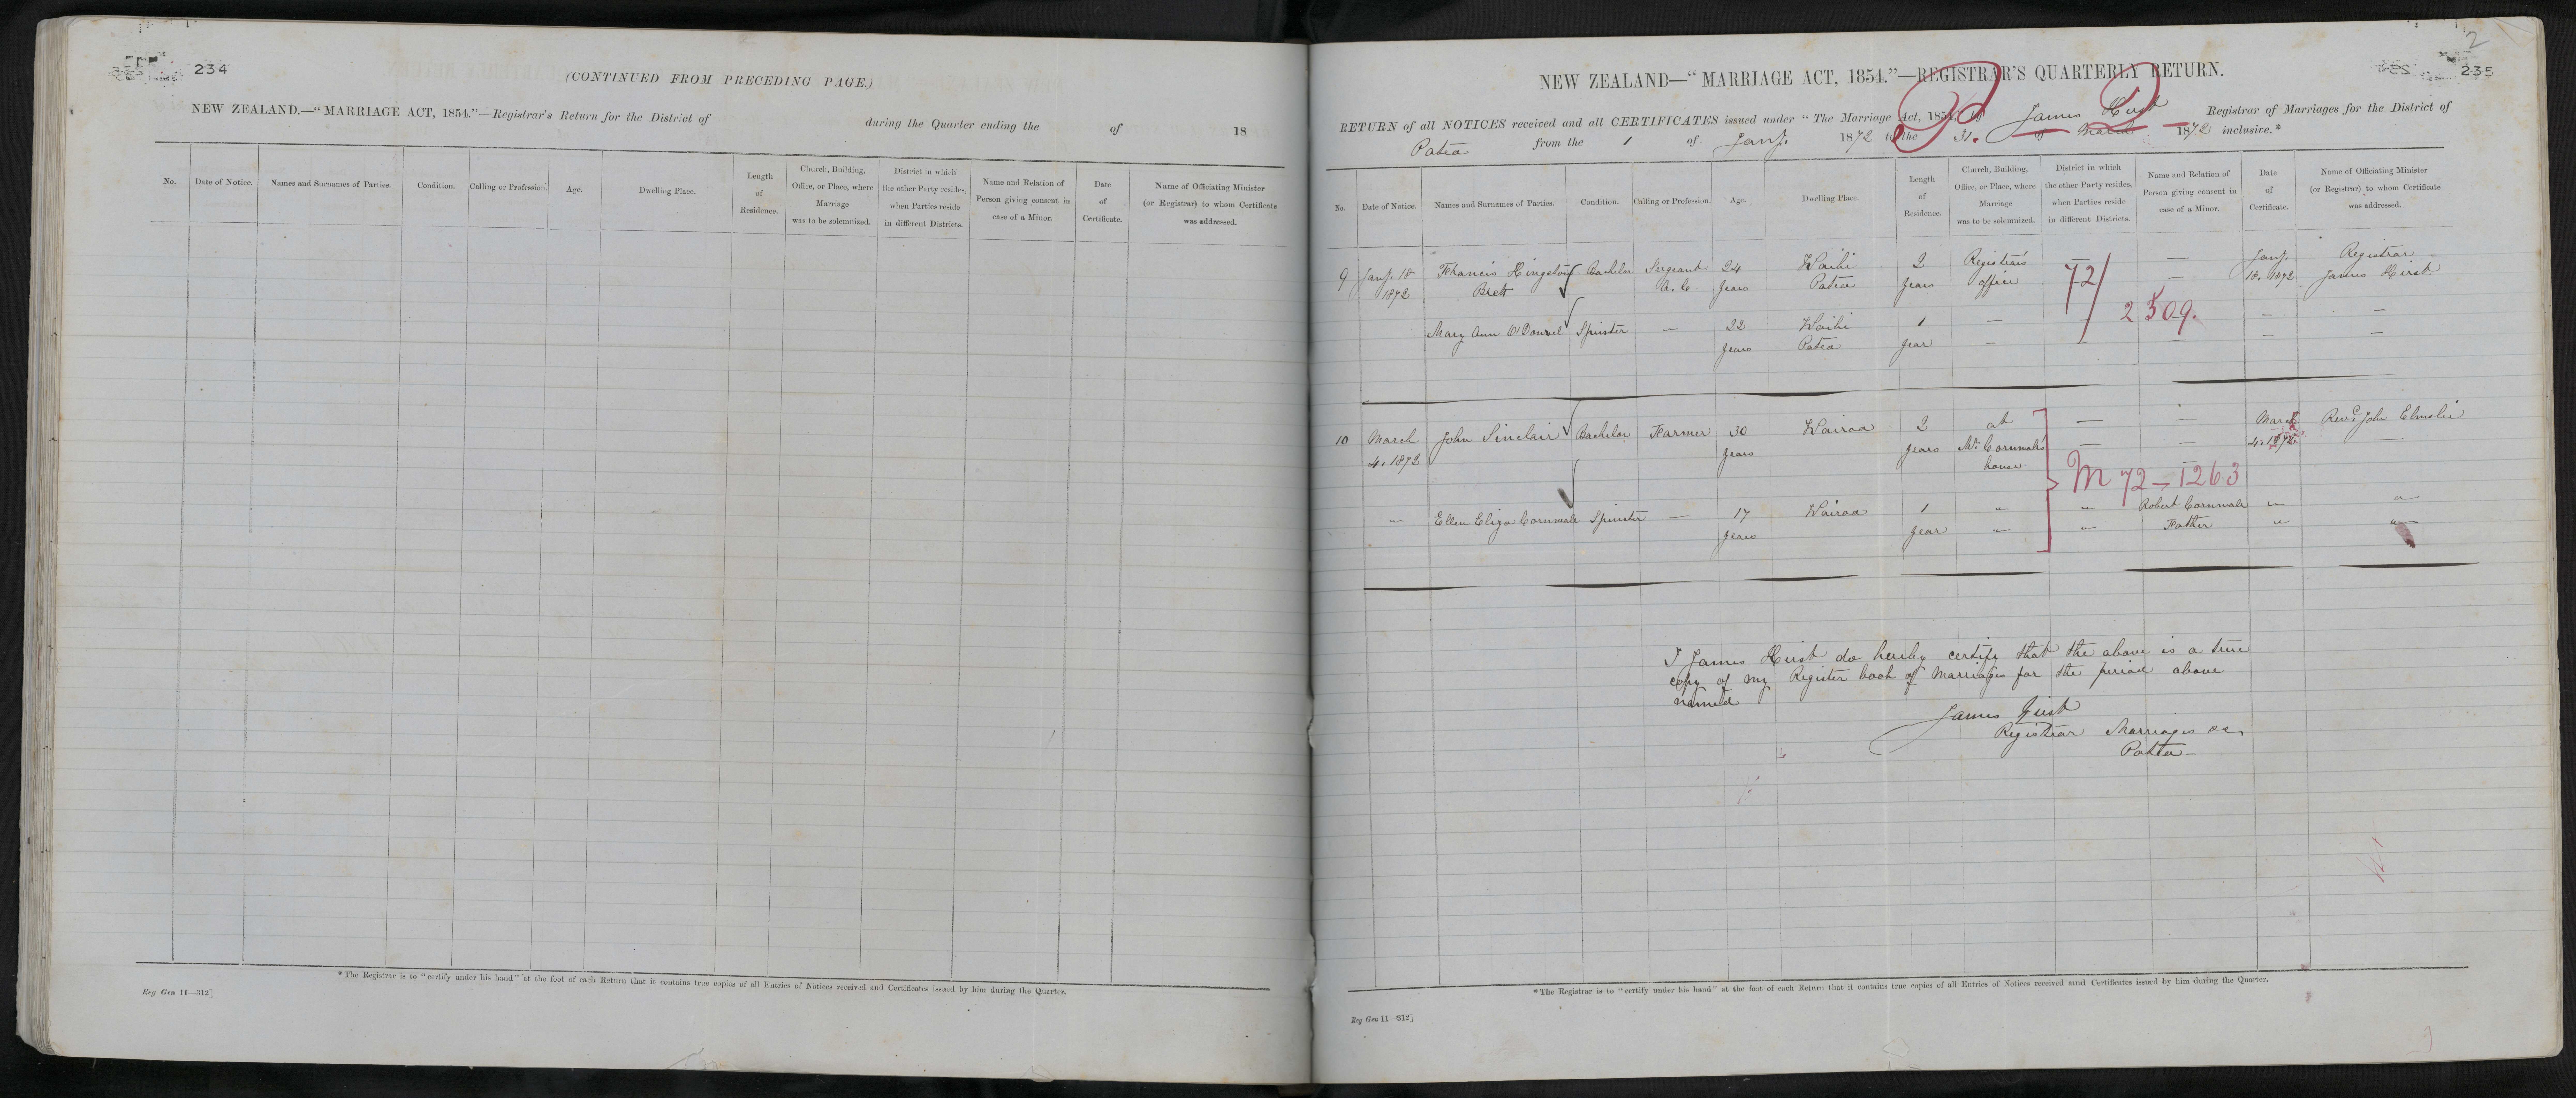 234
(CONTINUED FROM PRECEDING PAGE.)
NEW ZEALAND.—"MARRIAGE ACT, 1854."—Registrar's Return for the District of during the Quarter ending the of 18
No. Date of Notice. Names and Surnames of Parties. Condition. Calling or Profession. Age. Dwelling Place. Length of Residence. Church, Building, Office, or Place, where Marriage was to be solemnized. District in which the other Party resides, when Parties reside in different Districts. Name and Relation of Person giving consent in case of a Minor. Date of Certificate. Name of Officiating Minister (or Registrar) to whom Certificate was addressed.
*The Registrar is to "certify under his hand" at the foot of each Return that it contains true copies of all Entries of Notices received and Certificates issued by him during the Quarter.
Reg Gen 11—312]
2
235
NEW ZEALAND—"MARRIAGE ACT, 1854."—REGISTRAR'S QUARTERLY RETURN.
RETURN of all NOTICES received and all CERTIFICATES issued under "The Marriage Act, 1854," by James Hirst Registrar of Marriages for the District of
Patea from the 1 of Jany. 1872 to the 31. of March 1872 inclusive.*
No. Date of Notice. Names and Surnames of Parties. Condition. Calling or Profession. Age. Dwelling Place. Length of Residence. Church, Building, Office, or Place, where Marriage was to be solemnized. District in which the other Party resides, when Parties reside in different Districts. Name and Relation of Person giving consent in case of a Minor. Date of Certificate. Name of Officiating Minister (or Registrar) to whom Certificate was addressed.
9 Jany. 18 Francis Hingston Bachelor Sergeant 24 Waihi 2 Registrar's — — Jany. Registrar
1872 Brett A. C. years Patea years office — 18. 1872 James Hirst.
72/2509.
Mary Ann O'Donnel Spinster — 22 Waihi 1 — — — —
years Patea year — — — — —
10 March John Sinclair Bachelor Farmer 30 Wairoa 2 at — — March Revd. John Elmslie
4. 1872 years years Mr. Cornwale's — — 4. 1872 —
house
M 72—1263
" Ellen Eliza Cornwale Spinster — 17 Wairoa 1 " " Robert Cornwale " "
years year " " Father " "
I James Hirst do hereby certify that the above is a true
copy of my Register book of Marriages for the period above
named
James Hirst
Registrar Marriages &c,
Patea—
*The Registrar is to "certify under his hand" at the foot of each Return that it contains true copies of all Entries of Notices received and Certificates issued by him during the Quarter.
Reg Gen 11—312]